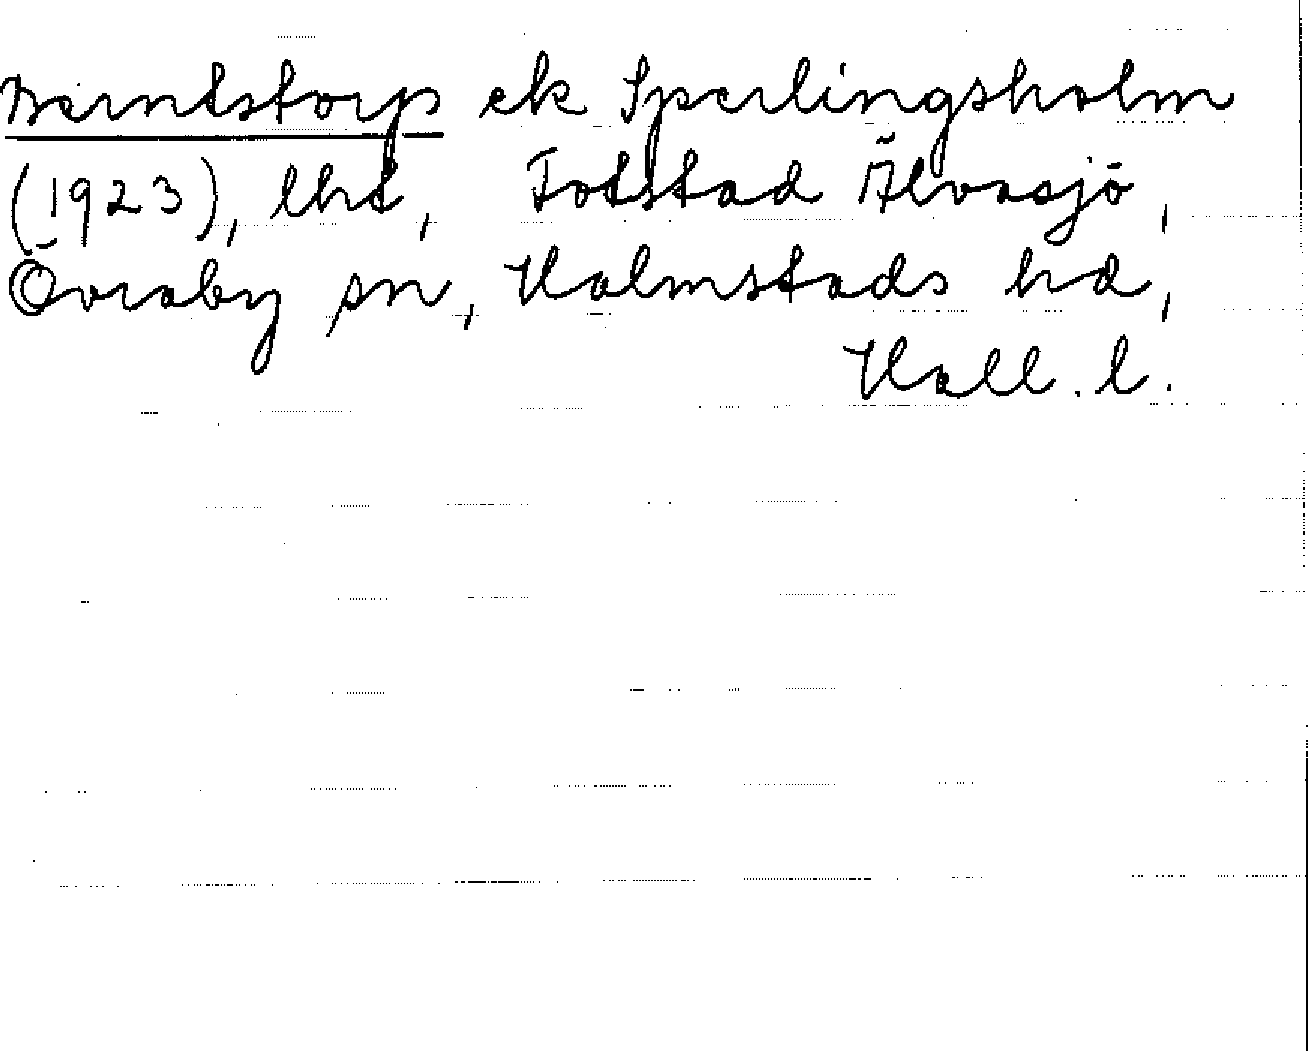 Berntstorp ek Sperlingsholm
(1923), lht, Fotstad Älvasjö,
Övraby sn, Halmstads hd,
Hall. l.